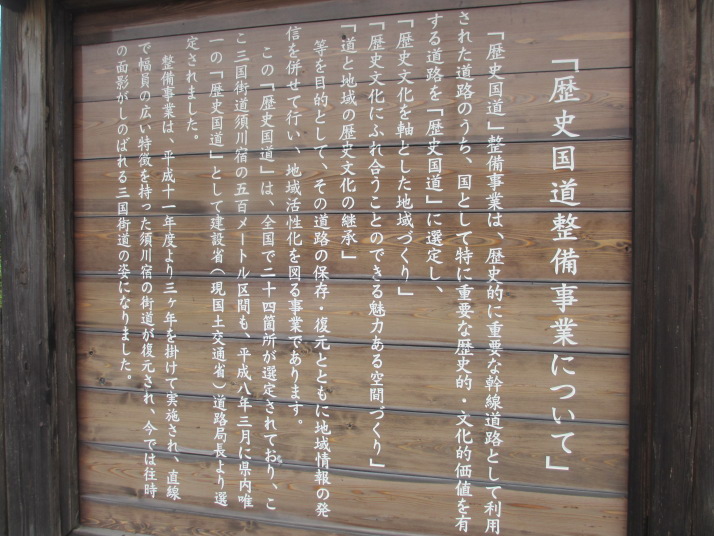 「歴史国道整備事業について」
「歴史国道」整備事業は、歴史的に重要な幹線道路として利用
された道路のうち、国として特に重要な歴史的・文化的価値を有
する道路を「歴史国道」に選定し、
「歴史文化を軸とした地域づくり」
「歴史文化にふれ合うことのできる魅力ある空間づくり」
「道と地域の歴史文化の継承」
等を目的として、その道路の保存・復元とともに地域情報の発
信を併せて行い、地域活性化を図る事業であります。
この「歴史国道」は、全国で二十四箇所が選定されており、こ
こ三国街道須川宿の五百メートル区間も、平成八年三月に県内唯
一の「歴史国道」として建設省（現国土交通省）道路局長より選
定されました。
整備事業は、平成十一年度より三ヶ年を掛けて実施され、直線
で幅員の広い特徴を持った須川宿の街道が復元され、今では往時
の面影がしのばれる三国街道の姿になりました。